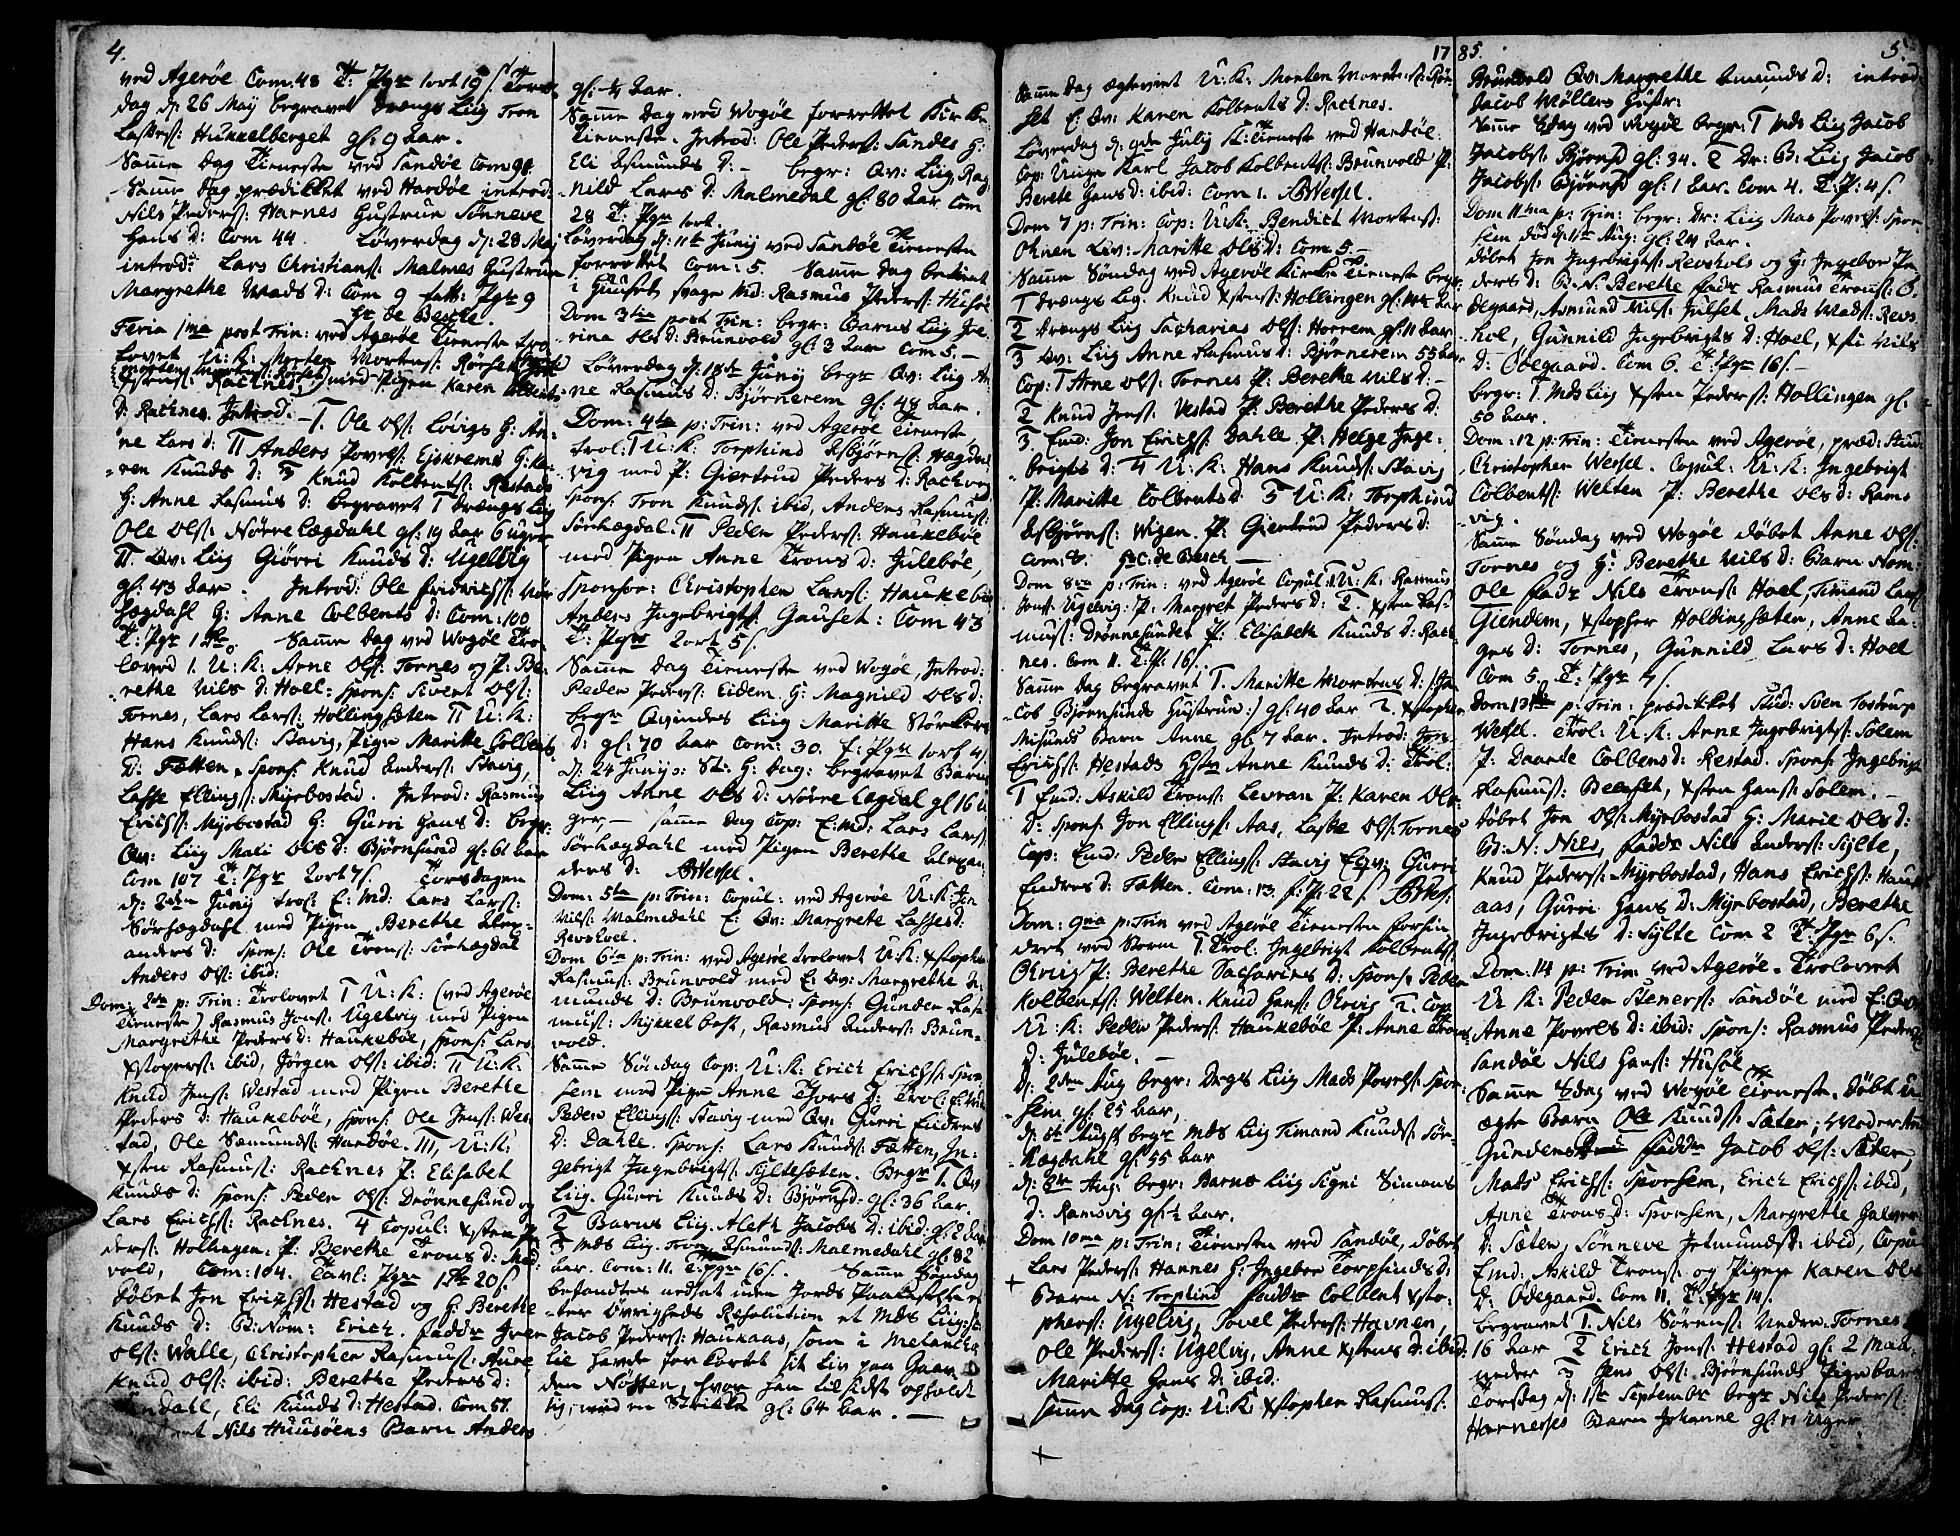 4.
ved Agerøe Com: 48 T: Pgr 1ort 19 s. Tors-
dag d: 26 Maij begravet drengs Liig Tron
Lasses: Hukkelberget gl: 9 Aar.
Samme Dag Tieneste ved Sandøe Com 98
Samme dag prædikket ved Harøe introd:
Nils Peders: Harnes Hustrue Sønneve
Hans d: Com 44. Løverdag d: 28 Maj
introd: Lars Christians: Malmes Hustrue
Margrethe Mads d: Com 9 Pgr 9
Hr de Besche.
Feria 1ma post Trin: ved Agerøe Tieneste tro-
lovet U: K: Morten Mortens: Rørset
Rachnes med Pigen Karen Colbents
d: Rachnes. Introd: 1. Ole Ols: Løvigs H: An-
ne Lars d: II Anders Povels: Ejskrems H: Ka-
ren Knuds d: 3 Knud Kolbents: Restads
H: Anne Rasmus d: begravet 1 drengs Liig
Ole Ols: Nørre Lægdahl gl: 19 Aar 6 uger
II. Qv: Liig Giørri Knuds d: Ugelvig
gl: 43 Aar. Introd: Ole Fridrichs: Nør
Hægdahl H: Anne Colbents d: Com: 100
T: Pgr 1 Rd. Samme Dag ved Wogøe Tro-
loved 1. U: K: Arne Ols: Tornes og P: Be-
rethe Nils d: Hoel: spons: Sivert Ols:
Tornes, Lars Lars: Hollingsæten II U: K:
Hans Knuds: Stavig, Pigen Maritte Colbents
d: Fætten, Spons: Knud Anders: Stavig,
Lasse Ellings: Myrbostad. Introd: Rasmus
Erichs: Myrbostad H: Gurri Hans d: begr:
Qv: Liig Mali Ols d: Bjørnsund gl: 61 Aar
Com 107 T: Pgr 2ort 7 s. Torsdagen
d: 2den Junij trol: E: Md: Lars Lars:
Sørhægdahl med Pigen Berethe Alex-
anders d: Spons: Ole Trons: Sørhægdal
Anders Ols: ibid:
Dom: 2da p: Trin: Trolovet 1 U: K: (ved Agerøe
Tieneste) Rasmus Jons: Ugelvig med Pigen
Margrethe Peders d: Haukebøe, spons: Lars
Xstopers: ibid, Jørgen Ols: ibid: II U: K:
Knud Jens: Westad med Pigen Berethe
Peders d: Haukebøe, spons: Ole Jens: Wes-
tad, Ole Sæmunds: Harøe. III, U: K:
Xsten Rasmus: Rachnes P: Elisabet
Knuds d: spons: Peder Ols: Drønnesund og
Lars Erichs: Rachnes. 4 Copul: Xsten Pe-
ders: Hollingen: P: Berethe Trons d: Mal-
vold, Com: 104. Tavl: Pgr 1 Rd 20 s.
Døbet Jon Erichs: Hestad og H: Berethe
Knuds d: B: Nom: Erich. Faddr Iver
Ols: Walle, Christopher Rasmus: Aure,
Knud Ols: ibid: Berethe Peders d:
Eli Knuds d: Hestad. Com 57.
Nils Huusøens Barn Anders
gl: 4 Aar.
Samme Dag med Wogøe forrettet Kirke
Tieneste. Introd: Ole Peders: Sandes H:
Eli Asmunds d: begr: Qv: Liig Rag-
nild Lars d: Malmedal gl: 80 Aar Com
28 T: Pgr 1ort.
Løverdag d: 11te Junij ved Sandøe Tieneste
forrettet Com: 5. Samme dag betient
i Huuset svage Md: Rasmus Peders: Husøe
Dom 3tia post Trin: begr: Barns Liig Je-
rina Ols d: Brunvold gl: 3 Aar Com 5.
Løverdag d: 18de Junij begr Qv: Liig An-
ne Rasmus d: Bjørnerem gl: 48 Aar.
Dom: 4ta p: Trin: ved Agerøe Tieneste
trol: 1 U: K: Torphind Asbjørns: Hægdal
vig med P: Giertrud Peders d: Rachvog
spons: Tron Knuds: ibid, Anders Rasmus:
Sørhægdal. II Peder Peders: Haukebøe
med Pigen Anne Trons d: Julebøe,
Sponsor: Christopher Lars: Haukebøe
Anders Ingebrigts: Gauset: Com 43
T: Pgr 2ort 5 s.
Samme Dag Tieneste ved Wogøe, Introd:
Peder Peders: Eidem H: Magnild Ols d:
begr Qvindes Liig Maritte Størkers
d: gl: 70 Aar Com: 30. T: Pgr 1ort 4 s.
d: 24 Junij: St: H: Dag: begravet Barns
Liig Anne Ols d: Nørre Lægdal gl 16 U-
ger, samme Dag Cop: E: Md: Lars Lars:
Sørhægdahl med Pigen Berethe Alexan-
ders d: AWessel.
Dom: 5ta p: Trin: Copul: ved Agerøe U: K: Jen
Nils: Malmedahl E: Qv: Margrete Lasses d:
Revshoel.
Dom 6ta p: Trin: ved Agerøe trolovet U: K: Xstopher
Rasmus: Brunvold med E: Qv: Margrethe A-
munds d: Brunvold: Spons: Gunder Ras-
mus: Mykkelbost, Rasmus Anders: Brun-
vold.
Samme Søndag Cop: U: K: Erich Erichs: Spor-
sem med Pign Anne Tjors d: Trol: E:
Peder Ellings: Stavig med Qv: Gurri Endres
d: Dahle. spons: Lars Knuds: Fætten, In-
gebrigt Ingebrigts: Syltesæten. Begr 1. Qv
Liig. Gurri Knuds d: Bjørnsd gl: 36 Aar.
2 Barns Liig Aleth Jacobs d: ibid: gl: 2 Aar
3 Mds Liig Tron Asmunds: Malmedahl gl: 82
Aar. Com: 11. T: Pgr 16 s. Samme Søndag
befandtes nedsat uden Jords Paakastelse ef-
ter Øvrigheds Resolution et Mds Liig
Jacob Peders: Haukaas, som i Melanko-
lie havde forkortet sit Liv paa Gaar-
den Nøtten, hvor han til sidst opholdt
sig, med en Strikke gl: 64 Aar.
17
Samme Dag ægteviet U: K: Morten Mortens: Rør-
set E: Qv: Karen Kolbents d: Rachnes.
Løverdag d: 9de Julij K: Tieneste ved Harøe.
Cop: Unge Karl Jacob Kolbents: Brunvold P:
Berete Hans d: ibid: Com 1. AWessel.
Dom 7 p: Trin: Cop: U: K: Bendict Mortens:
Ohnen Qv: Maritte Ols d: Com 5.
Samme Søndag ved Agerøe Kirke Tieneste begr
1 Drengs Lig. Knud Xstens: Hollingen gl: Aar
2 Drengs Liig Sacharias Ols: Horrem gl: 11 Aar
3 Qv: Liig Anne Rasmus d: Bjørnerem 55 Aar
Cop: 1 Arne Ols: Tornes P: Berethe Nils d:
2 Knud Jens: Vestad P: Berethe Peders d:
3. Emd: Jon Erichs: Dahle P: Helge Inge-
brigts d: 4 U: K: Hans Knuds: Stavig
P: Maritte Colbents d: 5 U: K: Torphind
Asbjørns: Wigen. P: Giertrud Peders d:
Com: 8. H: C: de Besch
Dom 8va p: Trin: ved Agerøe Copul: 1 U: K: Rasmus
Jons: Ugelvig: P: Margret Peders d: 2. Xsten Ras-
mus: Drønnesundet P: Elisabeth Knuds d: Rach-
nes. Com 11. T: P: 16 s.
Samme Dag begravet 1. Maritte Mortens d: /: Ja-
cob Bjørnsunds Hustrue :/ gl: 40 Aar 2. Xstopher
Misunds Barn Anne gl: 7 Aar. Introd: Jon
Erichs: Hestads Hstr Anne Knuds d: Trol:
1 Emd: Askild Trons: Levran P: Karen Ols
d: Spons: Jon Ellings: Aas, Lasse Ols: Tornes
Cop: Emd: Peder Ellings: Stavig Eqv: Gurri
Endres d: Fætten. Com: 13. T: P: 22 s.
Dom: 9na p: Trin ved Agerøe Tienesten forhin-
dert ved Storm 1 Trol: Ingebrigt Kolbents:
Ohnig P: Berethe Sacharias d: Spons: Peder
Kolbents: Welten. Knud Hans: Ohvig 2. Cop:
U: K: Peder Peders: Haukebøe P: Anne Trons
d: Julebøe.
d: 2den Aug begr: Drgs Liig Mads Povels: Spor-
sem gl: 25 Aar,
d: 6te Augst begr Mds Liig Timand Knuds: Sør-
hægdahl gl: 55 Aar
d: Aug: begr: Barns Liig Signi Simons
d: Ramsvig gl: ½ Aar.
Dom 10ma p: Trin: Tienesten ved Sandøe, døbet
Lars Peders: Harnes H: Ingebor Torphinds d:
Barn N: Torphind Faddr Colbent Xsto-
phers: Ugelvig, Povel Peders: Havnen,
Ole Peders: Ugelvig, Anne Xstens d: ibid:
Maritte Hans d: ibid.
Samme Dag Cop: U: K: Xstopher Rasmus:
85.
5.
Brunvold Qv: Margrethe Amunds d: introd:
Jacob Møllers Hustr:
Samme Sdag ved Wogøe begr: 1 Mds Liig Jacob
Jacobs: Bjørnsd gl: 34. 2 Dr: B: Liig Jacob
Jacobs: Bjørnsd gl: 1 Aar. Com 4. T: P: 4 s.
Dom 11ma p: Trin: begr: Dr: Liig Mas Povels: Spor-
sem død d: 11te Aug: gl: 24 Aar.
døbet Jon Ingebrigts: Revshols og H: Ingebor Pe-
ders d: B: N: Berethe Faddr Rasmus Trons: O-
degaard, Asmund Julset, Mads Mads: Revs-
hol, Gunnild Ingebrigts d: Hoel, Nils
d: Odegaard. Com 6. T: Pgr 16 s.
begr: 1. Mds Liig Xsten Peders: Hollingen gl:
50 Aar.
Dom: 12 p: Trin: Tieneste ved Agerøe, præd: Stud:
Christopher Wessel. Copul: U: K: Ingebrigt
Colbents: Welten P: Berethe Ols d: Rams-
vig.
Samme Søndag ved Wogøe døbet Arne Ols:
Tornes og H: Berethe Nils d: Barn Nom:
Ole Faddr Nils Trons: Hoel, Timand Lars:
Giendem, Xstopher Holdingsæten, Anne La-
ges d: Tornes, Gunnild Lars d: Hoel
Com 5. T: Pgr 4 s.
Dom 13tia p: Trin: prædikket Stud: Sven Tostrup
Wessel. Trol: U: K: Arne Ingebrigts: Solem
P: Daarde Colbens d: Restad. Spons: Ingebrigt
Rasmus: Beenset, Xsten Hans: Solem.
døbet Jon Ols: Myrbostad H: Marie Ols d:
B: N: Nils, Faddr Nils Anders: Sylte,
Knud Peders: Myrbostad, Hans Erichs: Hauk-
aas, Gurri Hans d: Myrbostad, Berethe
Ingebrigts d: Sylte Com 2 T: Pgr 6 s.
Dom: 14 p: Trin: ved Agerøe. Trolovet
U: K: Peder Steners: Sandøe med E: Qv:
Anne Povels d: ibid: Spons: Rasmus Peders:
Sandøe Nils Hans: Husøe
Samme Sdag ved Wogøe Tieneste. døbt U-
ægte Barn Ole Knuds: Sæter; Moder
Gunders Faddr Jacob Ols: Sæter,
Mads Erichs: Sporsem, Erich Erichs: ibid,
Anne Trons d: Sporsem, Margrethe Halvor
d: Sæter, Sønneve Jetmunds d: ibid, Copu
Emd: Askild Trons: og Pigen Karen Ols
d: Odegaard. Com 11. T: Pgr 14 s.
begravet 1. Nils Sørens: Neden-Tornes
16 Aar 2 Erich Jons: Hestad gl: 2 Maa-
neder 3 Jens Ols: Bjørnsunds Pigebarn
Torsdag d: 1ste Septembr begr Nils Peders:
Harneses Barn Johanne gl: 11 Uger